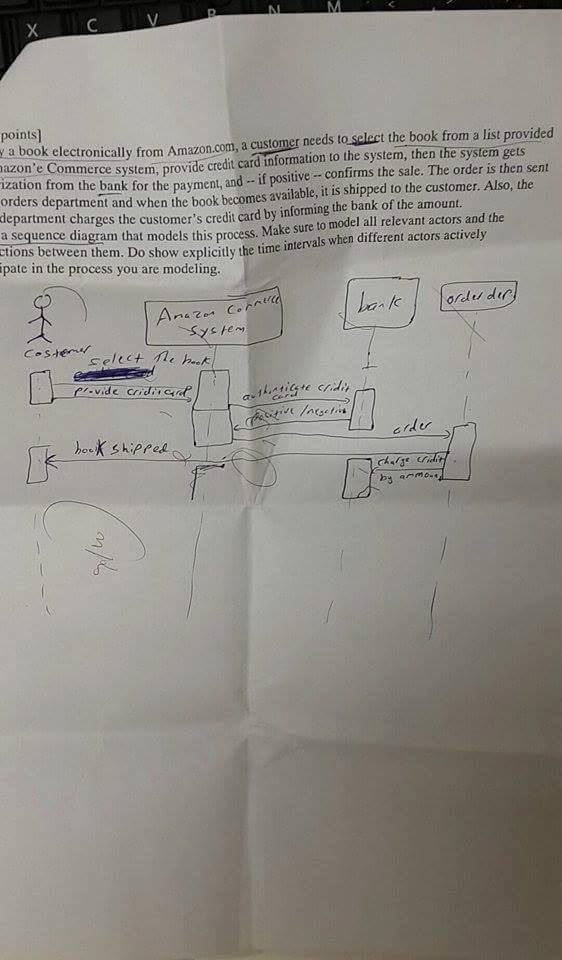 X C V B N M
points]
y a book electronically from Amazon.com, a customer needs to select the book from a list provided
nazon'e Commerce system, provide credit card information to the system, then the system gets
ization from the bank for the payment, and -- if positive -- confirms the sale. The order is then sent
orders department and when the book becomes available, it is shipped to the customer. Also, the
department charges the customer's credit card by informing the bank of the amount.
a sequence diagram that models this process. Make sure to model all relevant actors and the
ctions between them. Do show explicitly the time intervals when different actors actively
ipate in the process you are modeling.
Costemer
Amazon Commerce
system
bank
order der
select the book
provide criditcard
authenticate cridit
card
positive /negative
order
book shipped
charge cridit
by ammount